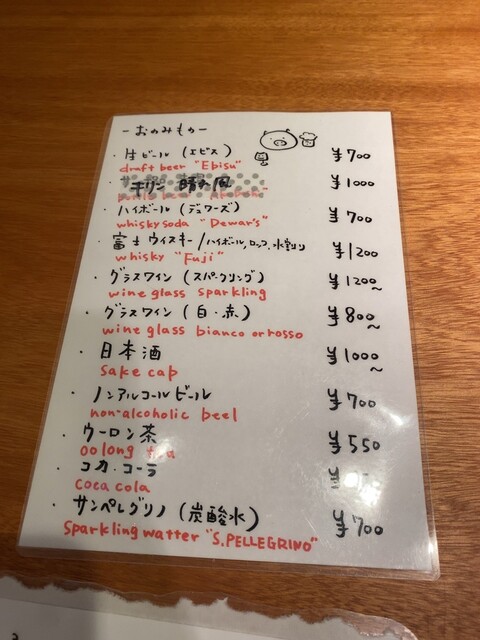 -おのみもの-
・生ビール (エビス) ¥700
draft beer "Ebisu"
・キリン 晴れ風 ¥1000
・ハイボール (デュワーズ) ¥700
whisky soda "Dewar's"
・富士ウイスキー/ハイボール,ロック,水割り ¥1200
whisky "Fuji"
・グラスワイン (スパークリング) ¥1200~
wine glass sparkling
・グラスワイン (白・赤) ¥800~
wine glass bianco or rosso
・日本酒 ¥1000~
sake cap
・ノンアルコールビール ¥700
non-alcoholic beel
・ウーロン茶 ¥550
oolong
・コカ・コーラ
coca cola
・サンペレグリノ (炭酸水) ¥700
sparkling watter "S.PELLEGRINO"